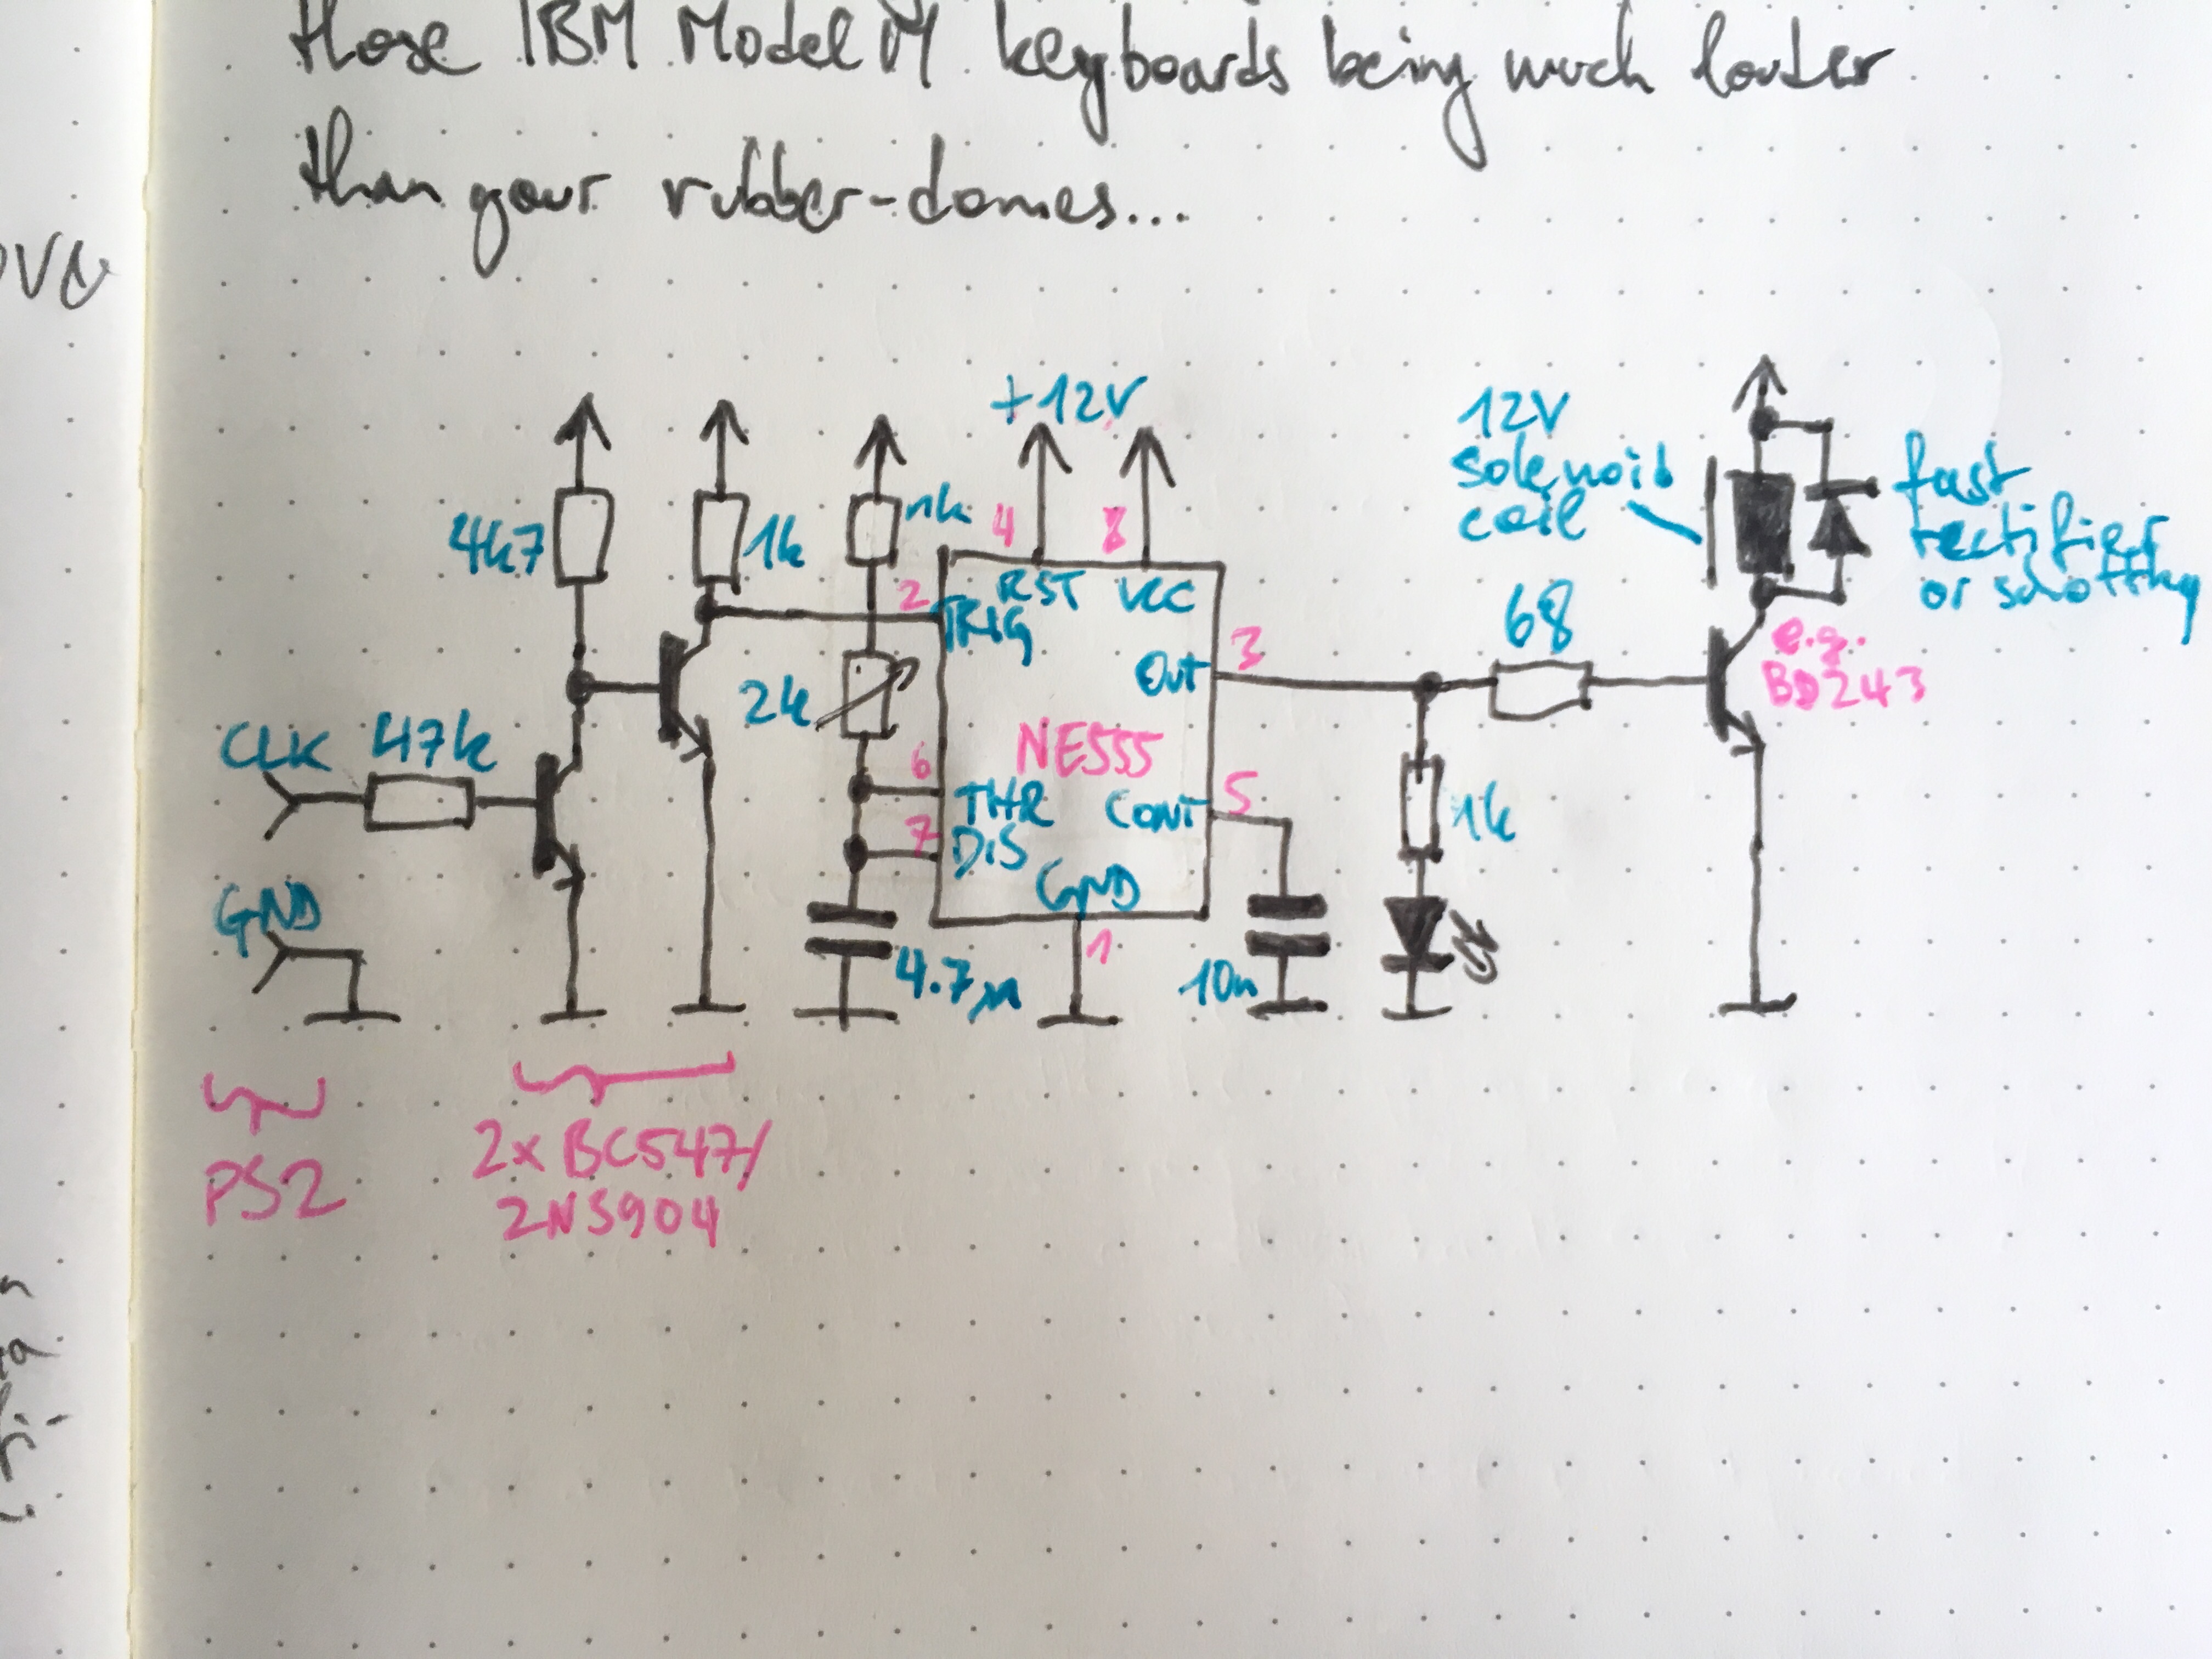 those IBM Model M keyboards being much louder
than your rubber-domes...
+12V
12V
solenoid
coil
fast
rectifier
or schottky
4k7
1k
1k
4
8
2
RST
VCC
TRIG
68
e.g.
BD243
3
Out
2k
NE555
CLK
47k
6
THR
CONT
5
1k
7
DIS
GND
GND
1
4.7µ
10n
PS2
2x BC547/
2N3904